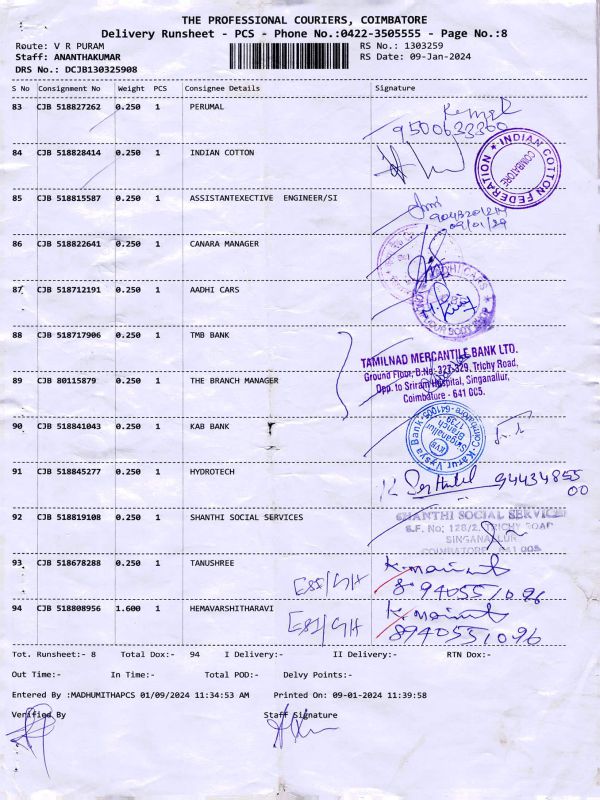 THE PROFESSIONAL COURIERS, COIMBATORE
Delivery Runsheet - PCS - Phone No.:0422-3505555 - Page No.:8
Route: V R PURAM RS No.: 1303259
Staff: ANANTHAKUMAR RS Date: 09-Jan-2024
DRS No.: DCJB130325908
S No Consignment No Weight PCS Consignee Details Signature
83 CJB 518827262 0.250 1 PERUMAL
9500633300
84 CJB 518828414 0.250 1 INDIAN COTTON
INDIAN COTTON FEDERATION
COIMBATORE
85 CJB 518815587 0.250 1 ASSISTANTEXECTIVE ENGINEER/SI
09/01/24
86 CJB 518822641 0.250 1 CANARA MANAGER
87 CJB 518712191 0.250 1 AADHI CARS
AADHI CARS
88 CJB 518717906 0.250 1 TMB BANK
TAMILNAD MERCANTILE BANK LTD.
Ground Floor, D.No: 327-329, Trichy Road,
89 CJB 80115879 0.250 1 THE BRANCH MANAGER
Opp. to Sriram Hospital, Singanallur,
Coimbatore - 641 005.
90 CJB 518841043 0.250 1 KAB BANK
Karur Vysya Bank
Coimbatore - 641005
Singanallur
Branch
1739
KVB
91 CJB 518845277 0.250 1 HYDROTECH
94434855
00
92 CJB 518819108 0.250 1 SHANTHI SOCIAL SERVICES
SHANTHI SOCIAL SERVICES
S.F. No: 128/2, TRICHY ROAD
SINGANALLUR
COIMBATORE - 641 005
93 CJB 518678288 0.250 1 TANUSHREE
ESI/GH
8940551096
94 CJB 518808956 1.600 1 HEMAVARSHITHARAVI
ESI/GH
8940551096
Tot. Runsheet:- 8 Total Dox:- 94 I Delivery:- II Delivery:- RTN Dox:-
Out Time:- In Time:- Total POD:- Delvy Points:-
Entered By :MADHUMITHAPCS 01/09/2024 11:34:53 AM Printed On: 09-01-2024 11:39:58
Verified By Staff Signature